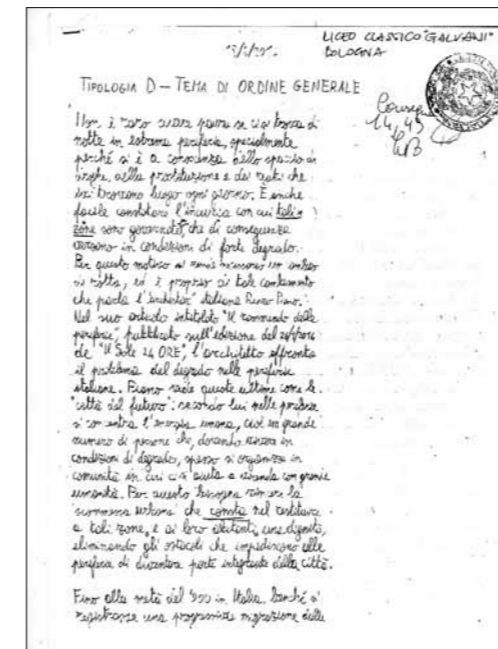 LICEO CLASSICO "GALVANI"
BOLOGNA
TIPOLOGIA D – TEMA DI ORDINE GENERALE
14,45
Non è raro avere paura se ci si trova di
notte in estrema periferia, specialmente
perché si è a conoscenza dello spaccio di
droghe, della prostituzione e dei reati che
vi luogo ogni giorno. È anche
facile constatare l'incuria con cui tali
zone sono governate, che di conseguenza
versano in condizioni di forte degrado.
Per questo motivo si necessario un cambio
di rotta, ed è proprio di tale cambiamento
che parla l'architetto italiano Renzo Piano.
Nel suo articolo intitolato "Il rammendo delle
periferie", pubblicato sull'edizione del
de "Il Sole 24 ORE", l'architetto affronta
il problema del degrado nelle periferie
italiane. Piano vede queste ultime come le
"città del futuro": secondo lui nelle periferie
si concentra l'energia umana, cioè un grande
numero di persone che, dovendo vivere in
condizioni di degrado, spesso si organizza in
comunità in cui ci si aiuta a vicenda con grande
umanità. Per questo bisogna vincere la
scommessa urbana che consta nel restituire
a tali zone, e ai loro abitanti, una dignità,
eliminando gli ostacoli che impediscono alle
periferie di diventare parte integrante della città.
Fino alla metà del '900 in Italia, benché si
registrasse una progressiva migrazione dalle